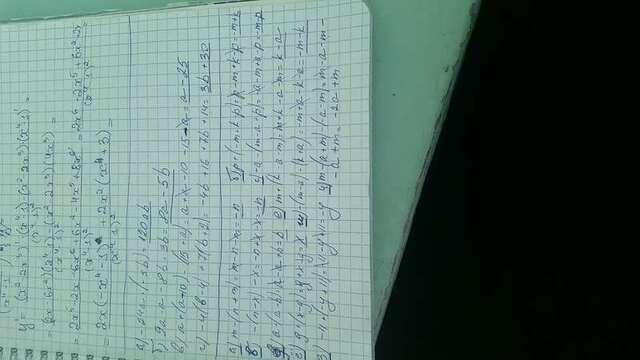 y = (x² - 2x³)' · (x⁴-1) - (x² - 2x³) · (x⁴-1)' =
(x⁴-1)²
= (2x - 6x²)(x⁴-1) - (x² - 2x³)(4x³) =
(x⁴-1)²
= 2x⁵ - 2x - 6x⁶ + 6x² - 4x⁵ + 8x⁶ = 2x⁶ - 2x⁵ + 6x² - 2x
(x⁴-1)² (x⁴-1)²
= 2x(-x⁴-1) + 2x²(x⁴+3) =
(x⁴-1)²
а) -24a · (-5b) = 120ab
б) 9a - a - 8b + 3b = 8a - 5b
в) a + (a-10) - (15 + a) = a + a - 10 - 15 - a = a - 25
г) -4(b-4) + 7(b+2) = -4b + 16 + 7b + 14 = 3b + 30
а) m - (n + m) = m - n - m = -n б) p + (-m + k - p) = p - m + k - p = -m + k
в) -(n - x) - x = -n + x - x = -n г) -a - (m - a + p) = -a - m + a - p = -m - p
д) a - (a - b) = a - a + b = b е) m + (k - a - m) = m + k - a - m = k - a
ё) y + (x - y) = y + x - y = x ж) -(m - a) - (k + a) = -m + a - k - a = -m - k
з) -11 + (-y + 11) = -11 - y + 11 = -y и) m - (a + m) - (-a - m) = m - a - m -
- a + m = -2a + m